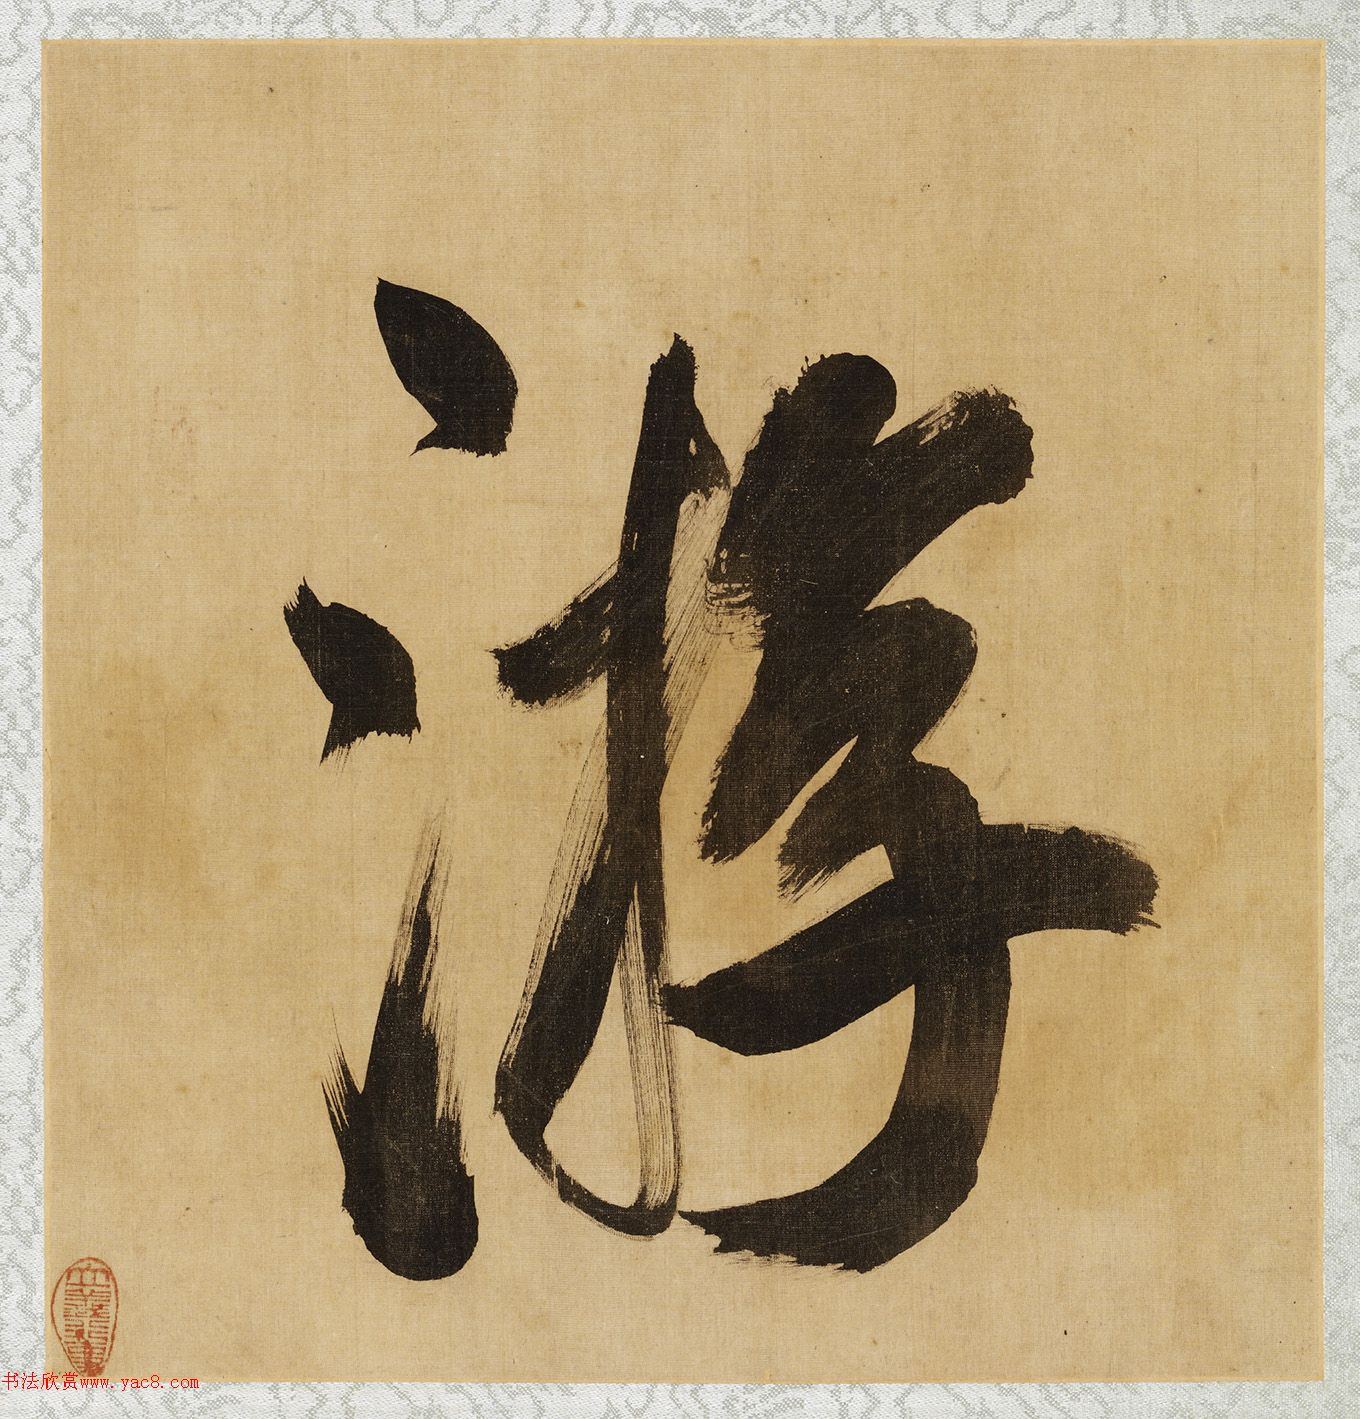 游
书法欣赏www.yac8.com